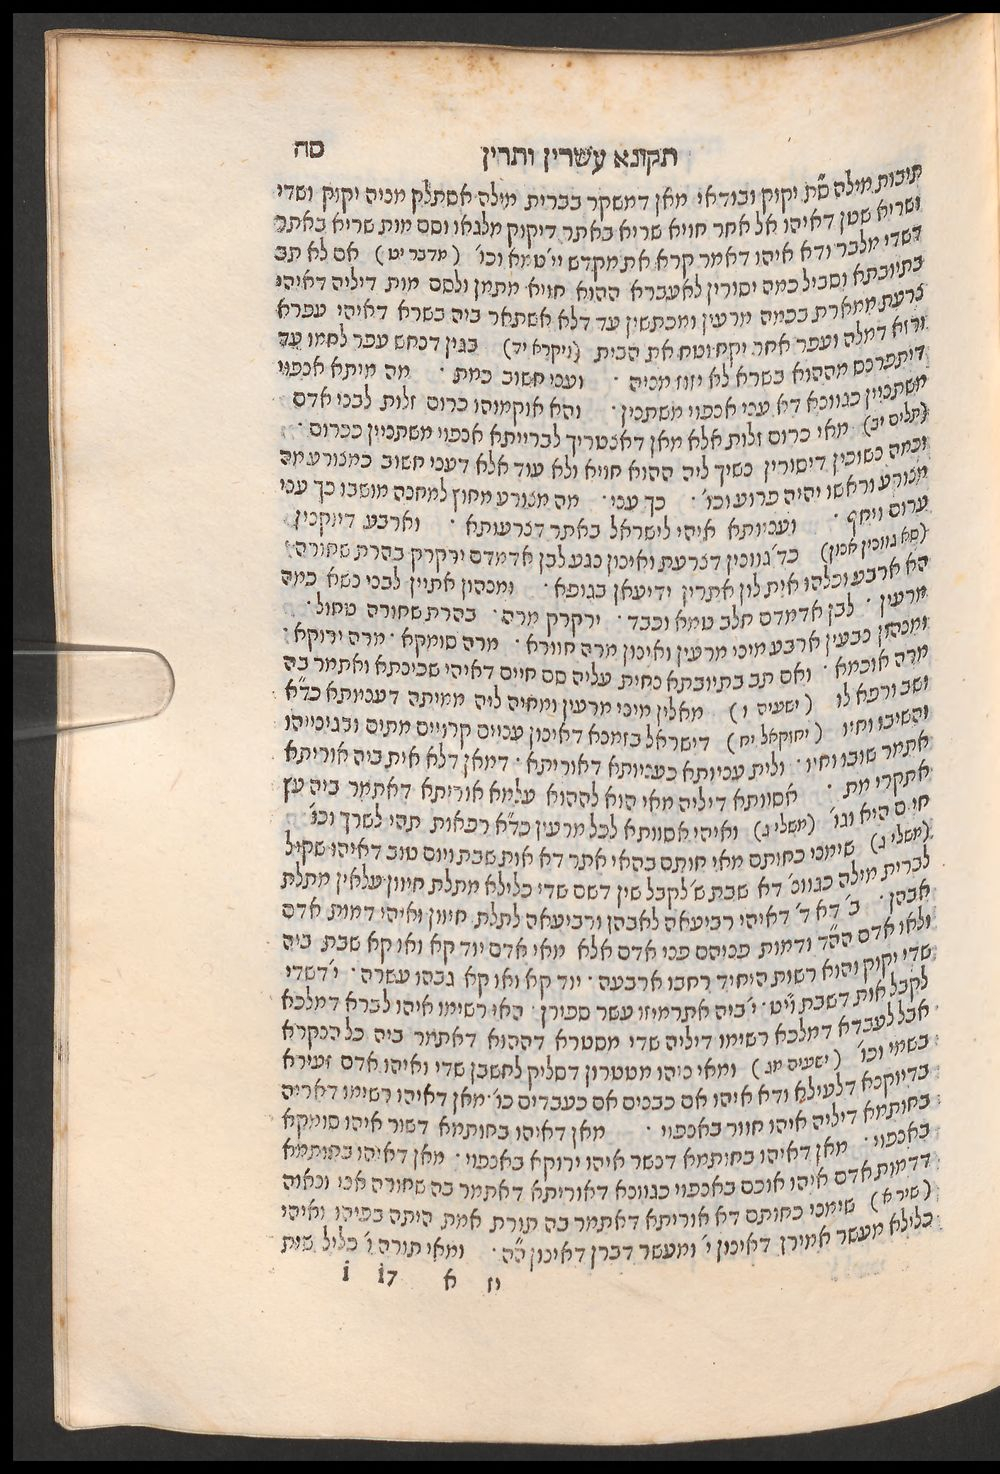 תקונא עשרין ותרין סה
תיבות מילה ס״ת יקוק ובודאי מאן דמשקר בברית מילה אסתלק מניה יקוק ושדי
ושריא שטן דאיהו אל אחר חויא שריא באתר דיקוק מלגאו וסם מות שריא באתר
דשדי מלבר ודא איהו דאמר קרא את מקדש יי׳ טמא וכו׳ (מדבר יט) אם לא תב
בתיובתא וסביל כמה יסורין לאעברא ההוא חויא מתמן ולסם מות דיליה דאיהי
צרעת ממארת בכמה מרעין ומכתשין עד דלא אשתאר ביה בשרא דאיהי עפרא
ורזא דמלה ועפר אחר יקח וטח את הבית (ויקרא יד) בגין דנחש עפר לחמו עד
דיתפרנס מההוא בשרא לא יזוז מניה · ועני חשוב כמת · מה מיתא אנפוי
משתניין כגוונא דא עני אנפוי משתנין · והא אוקמוהו כרום זלות לבני אדם
(תלים יב) מאי כרום זלות אלא מאן דאצטריך לברייתא אנפוי משתניין ככרום ·
וכמה נשוכין דיסורין נשיך ליה ההוא חויא ולא עוד אלא דעני חשוב כמצורע מה
מצורע וראשו יהיה פרוע וכו׳ · כך עני · מה מצורע מחוץ למחנה מושבו כך עני
ערום ויחף · ועניותא איהי לישראל באתר דצרעותא · וארבע דיוקנין
(סא גוונין אנון) כד׳ גוונין דצרעת ואינון נגע לבן אדמדם ירקרק בהרת שחורה
הא ארבע וכלהו אית לון אתרין ידיעאן בגופא · ומנהון אתיין לבני נשא כמה
מרעין · לבן אדמדם חלב טמא וכבד · ירקרק מרה · בהרת שחורה טחול ·
ומנהון נבעין ארבע מיני מרעין ואינון מרה חוורא · מרה סומקא · מרה ירוקא
מרה אוכמא · ואם תב בתיובתא נחית עליה סם חיים דאיהי שכינתא ואתמר בה
ושב ורפא לו (ישעיה ו) מאלין מיני מרעין ומחיה ליה ממיתה דעניותא כד״א
והשיבו וחיו (יחזקאל יח) דישראל בזמנא דאינון עניים קרויים מתים ובגינייהו
אתמר שובו וחיו · ולית עניותא כעניותא דאוריתא · דמאן דלא אית ביה אוריתא
אתקרי מת · אסוותא דיליה מאי הוא לההוא עלמא אוריתא דאתמר ביה עץ
חיים היא וגו׳ (משלי ג) ואיהי אסוותא לכל מרעין כד״א רפאות תהי לשרך וכו׳
(משלי ג) שימני כחותם מאי חותם בהאי אתר דא אות שבת ויום טוב דאיהו שקיל
לברית מילה כגוונ׳ דא שבת ש׳ לקבל שין דשם שדי כלילא מתלת חיוון עלאין מתלת
אבהן · ב׳ דא ד׳ דאיהי רביעאה לאבהן ורביעאה לתלת חיוון ואיהי דמות אדם
ולאו אדם הה״ד ודמות פניהם פני אדם אלא מאי אדם יוד קא ואו קא שבת ביה
שדי יקוק והוא רשות היחיד רחבו ארבעה · יוד קא ואו קא גבהו עשרה · ו׳ דשדי
לקבל אות דשבת וי״ט · י׳ ביה אתרמיזו עשר ספירן האי רשימו איהו לברא דמלכא
אבל לעבדא דמלכא רשימו דיליה שדי מסטרא דההוא דאתמר ביה כל הנקרא
בשמי וכו׳ (ישעיה מג) ומאי ניהו מטטרון דסליק לחשבן שדי ואיהו אדם זעירא
בדיוקנא דלעילא ודא איהו אם כבנים אם כעבדים כו׳ · מאן דאיהו רשימו דאריה
בחותמא דיליה איהו חוור באנפוי · מאן דאיהו בחותמא דשור איהו סומקא
באנפוי · מאן דאיהו בחותמא דנשר איהו ירוקא באנפוי · מאן דאיהו בחותמא
דדמות אדם איהו אוכם באנפוי כגוונא דאוריתא דאתמר בה שחורה אני ונאוה
(שיר א) שימני כחותם דא אוריתא דאתמר בה תורת אמת היתה בפיהו ואיהי
כלילא מעשר אמירן דאינון י׳ ומעשר דברן דאינון ה״ה · ומאי תורה ו׳ כליל שית
יז א i 17 i